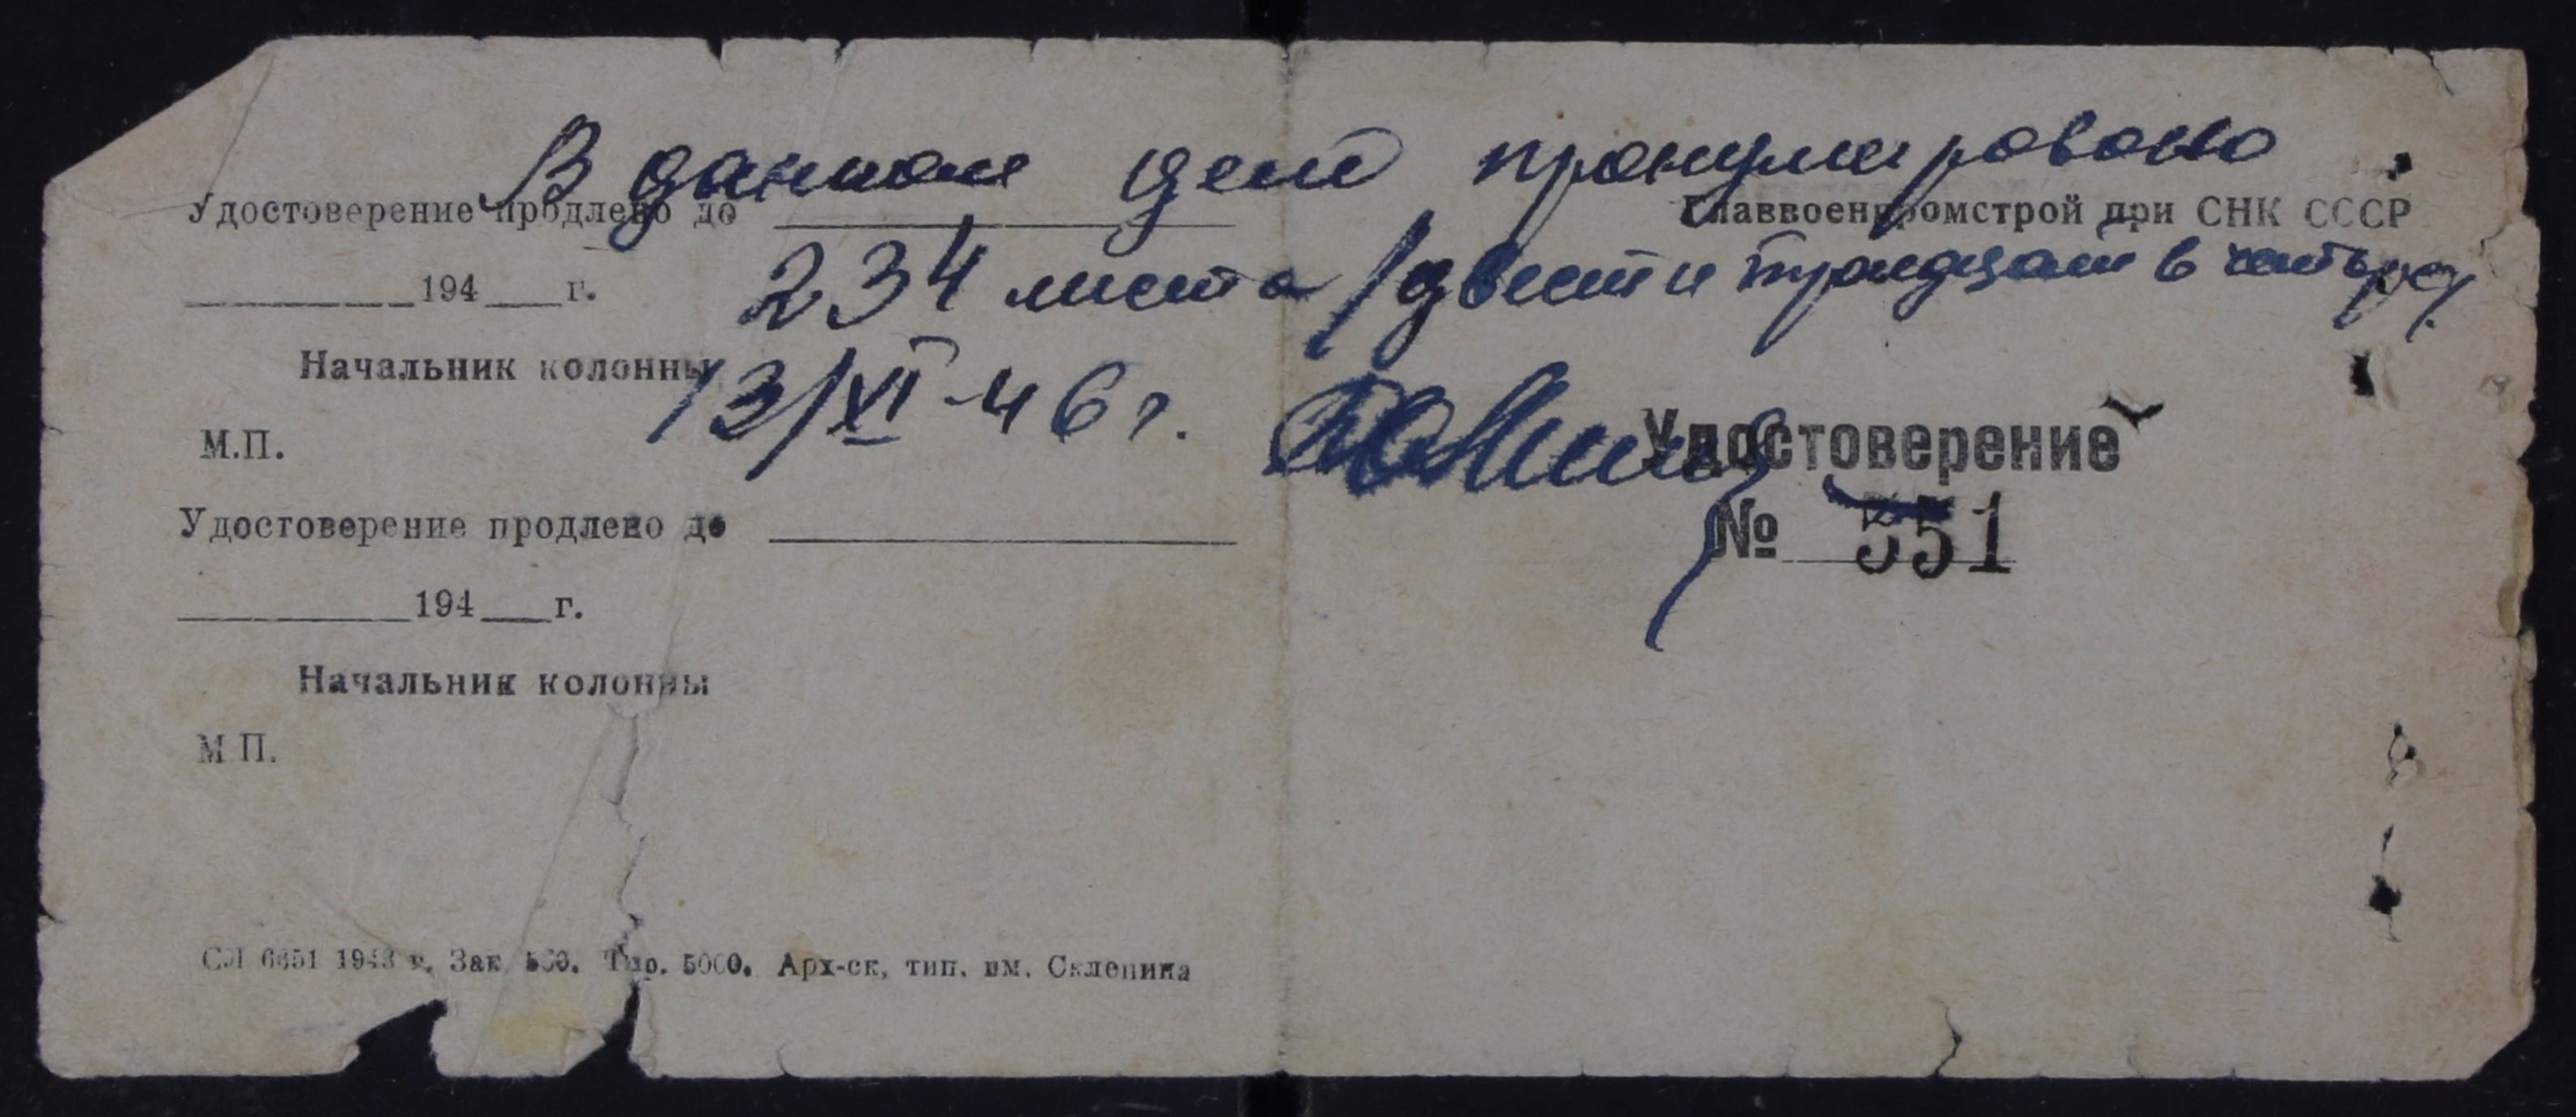 В данном деле пронумеровано
234 листа /двести тридцать четыре/
13/XI-46 г.
Удостоверение продлено до
194 г.
Начальник колонны
М.П.
Удостоверение продлено до
194 г.
Начальник колонны
М.П.
СЛ 6651 1943 г. Зак. Тир. 5000. Арх-ск, тип. им. Склепина
Главвоенпромстрой при СНК СССР
Удостоверение
№ 551